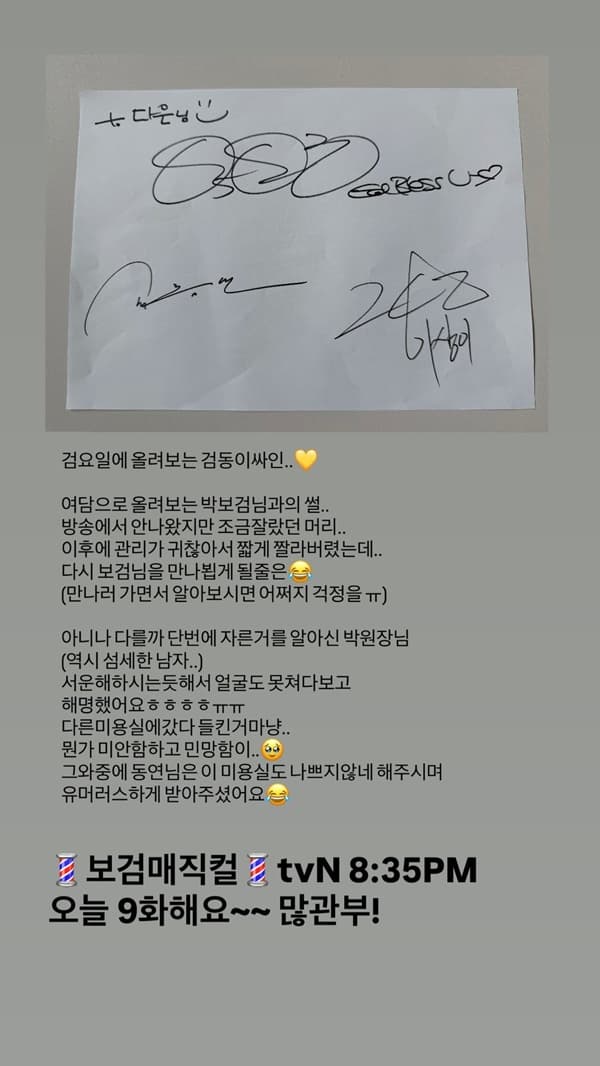 To. 다은님
God Bless U
이상이
검요일에 올려보는 검동이싸인..💛
여담으로 올려보는 박보검님과의 썰..
방송에서 안나왔지만 조금잘랐던 머리..
이후에 관리가 귀찮아서 짧게 짤라버렸는데..
다시 보검님을 만나뵙게 될줄은😂
(만나러 가면서 알아보시면 어쩌지 걱정을 ㅠ)
아니나 다를까 단번에 자른거를 알아신 박원장님
(역시 섬세한 남자..)
서운해하시는듯해서 얼굴도 못쳐다보고
해명했어요ㅎㅎㅎㅎㅠㅠ
다른미용실에갔다 들킨거마냥..
뭔가 미안함하고 민망함이..🥹
그와중에 동연님은 이 미용실도 나쁘지않네 해주시며
유머러스하게 받아주셨어요😂
💈보검매직컬💈tvN 8:35PM
오늘 9화해요~~ 많관부!